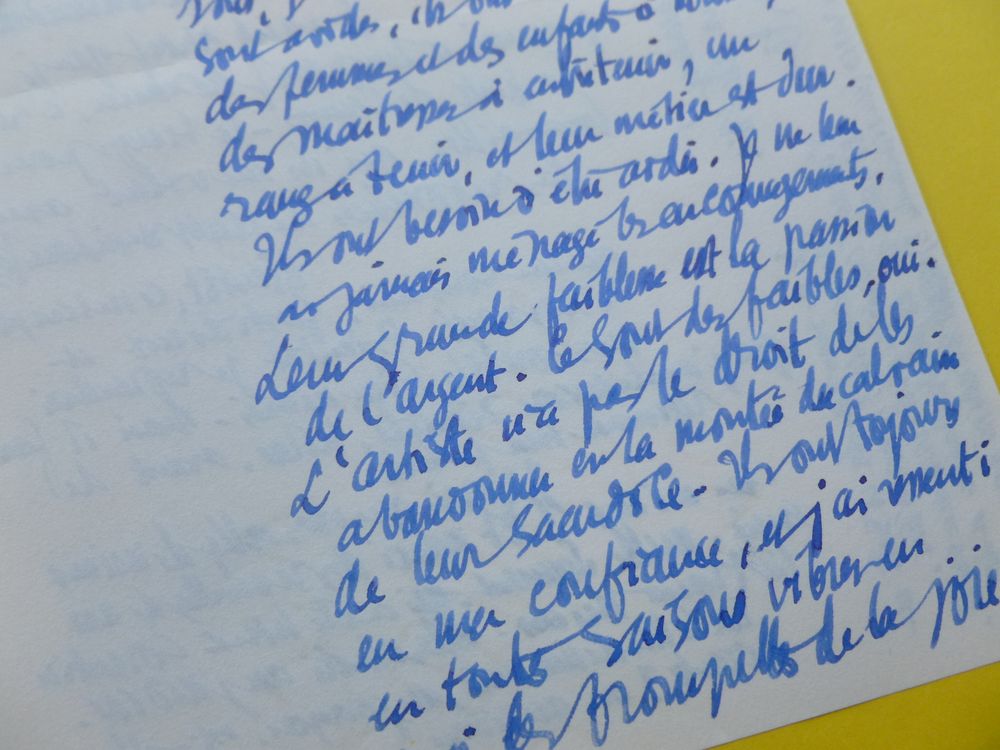 sont avides, ils ont
des femmes et des enfants à
des maîtresses à entretenir, un
rang à tenir, et leur métier est dur.
Ils ont besoin d'être aidés. Je ne leur
ai jamais ménagé les encouragements.
Leur grande faiblesse est la passion
de l'argent. Ce sont des faibles, oui.
L'artiste n'a pas le droit de les
abandonner en la montée du calvaire
de leur sacerdoce. Ils ont toujours
eu ma confiance, et j'ai ressenti
en toutes saisons vibrer en
les trompettes de la joie